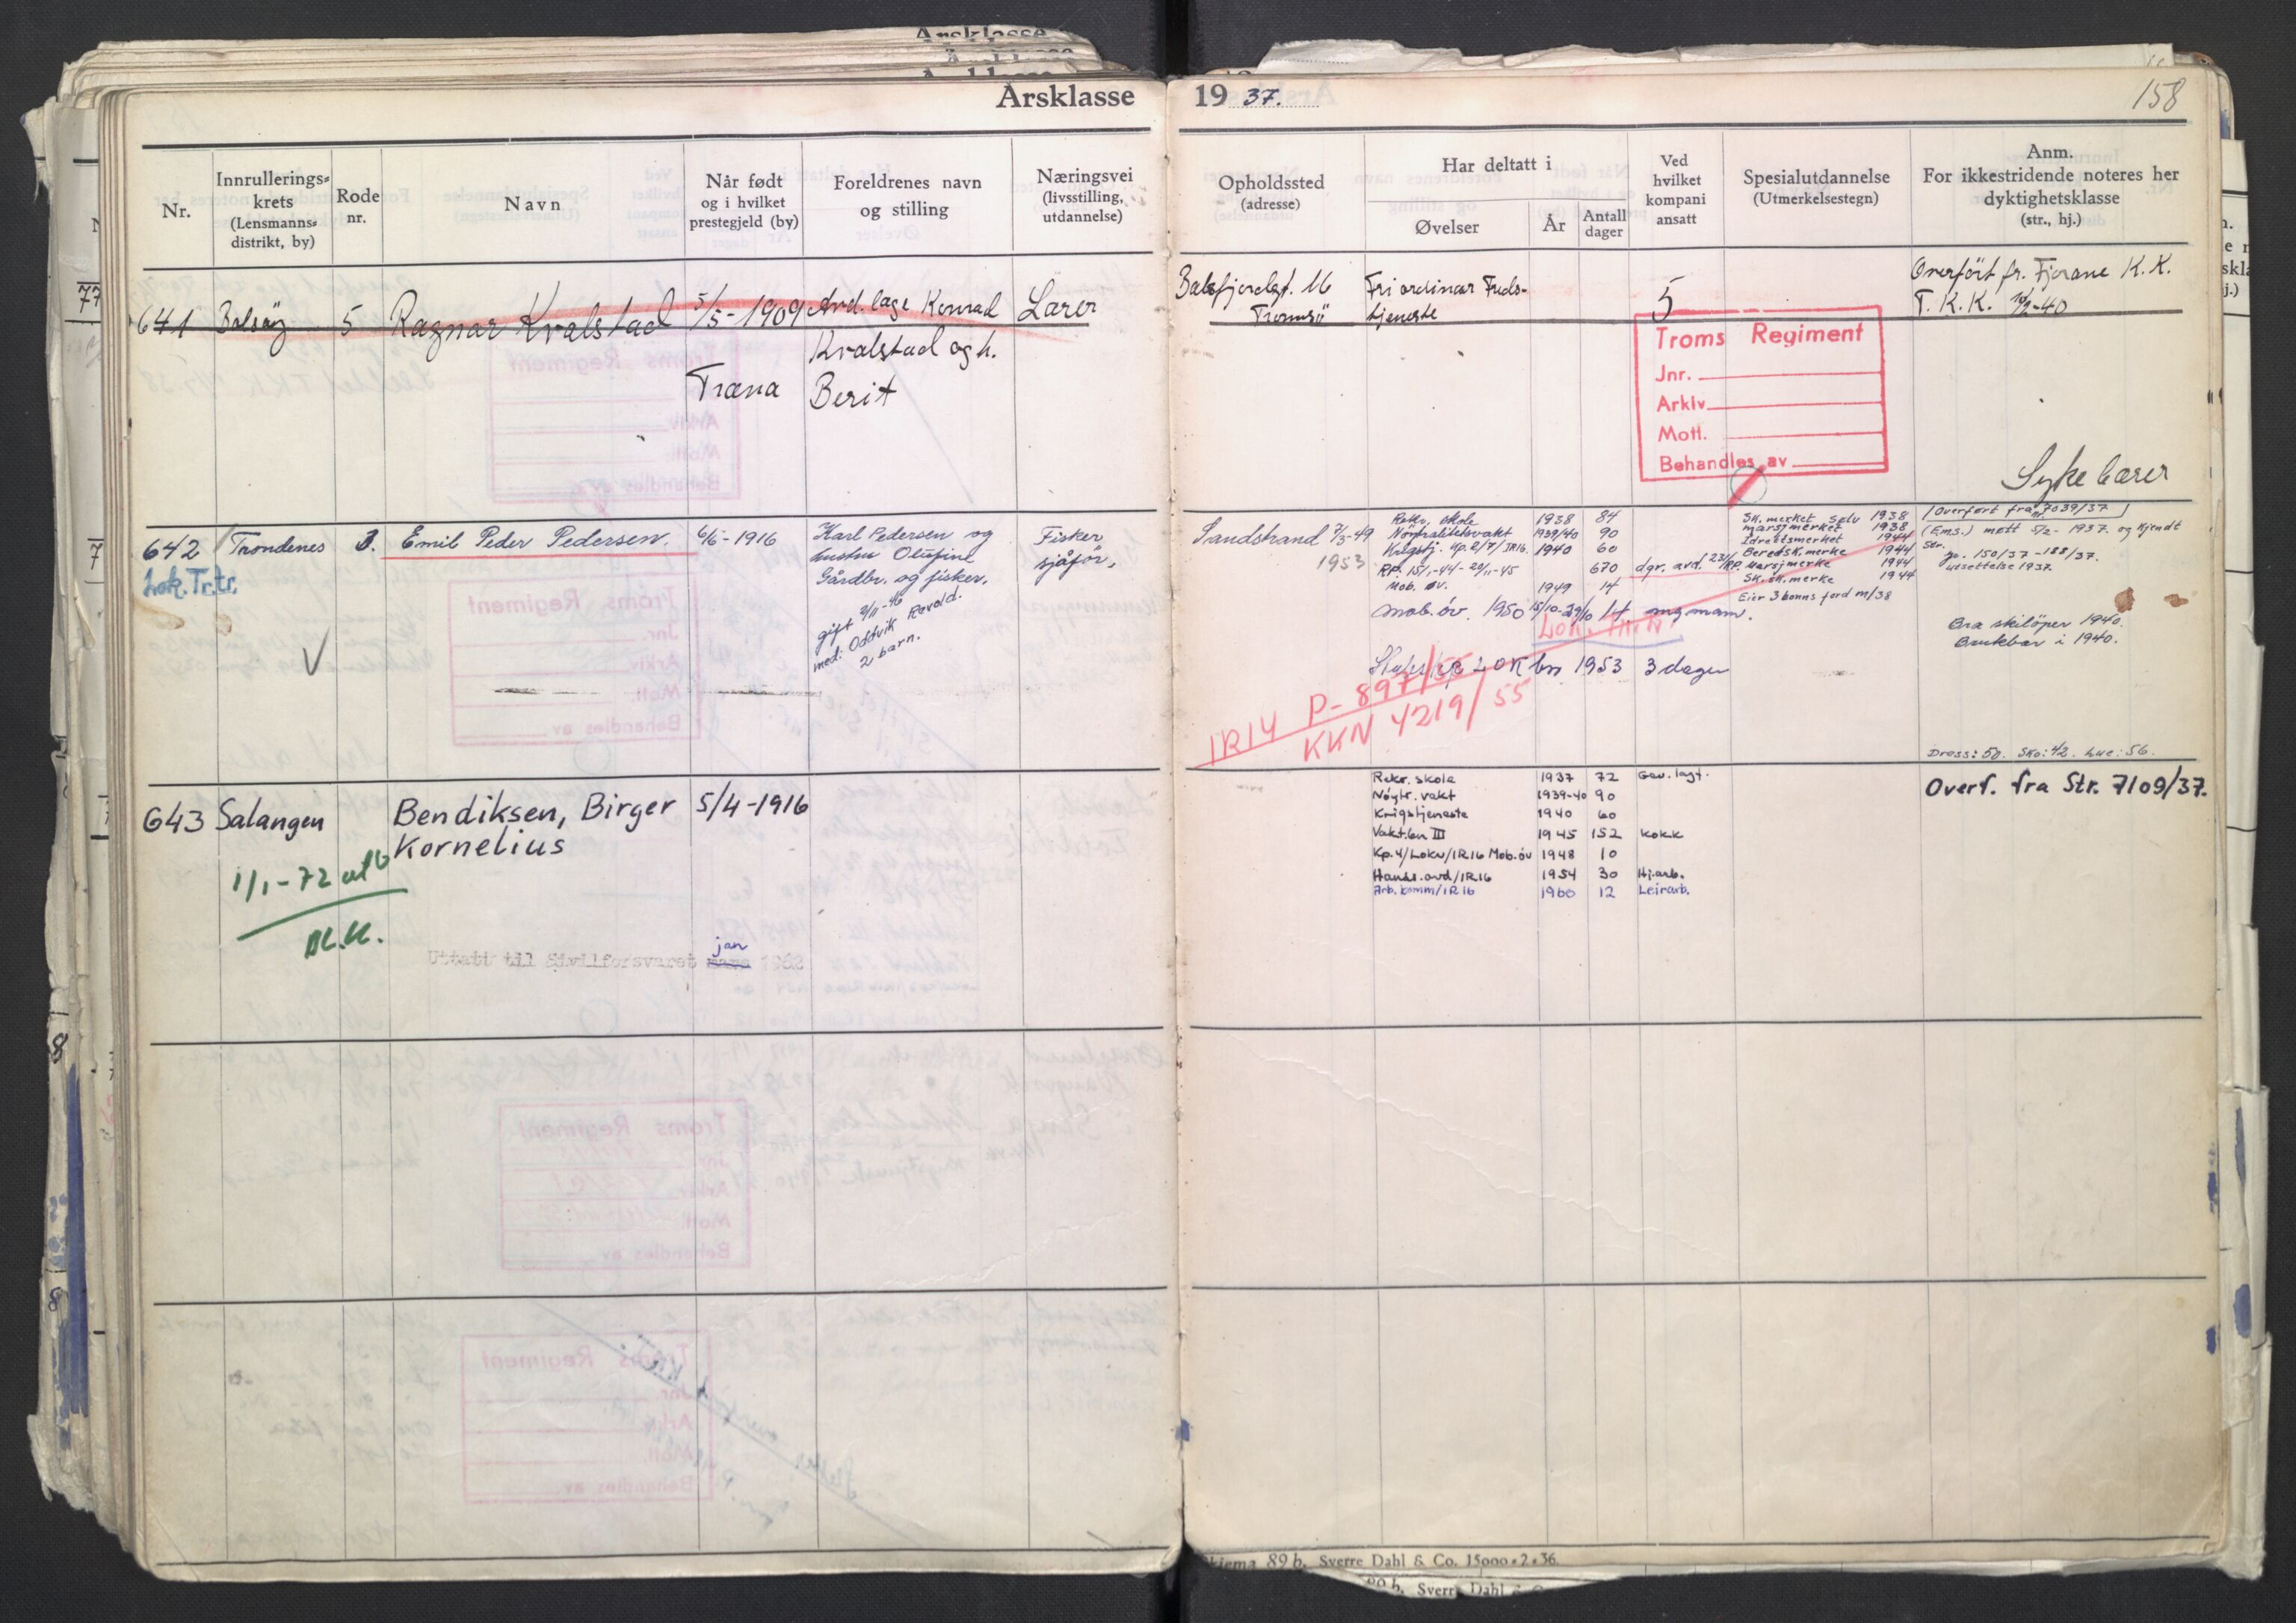 Årsklasse 19 37.
158
Nr.
Innrullerings-
krets
(Lensmanns-
distrikt, by)
Rode
nr.
Navn
Når født
og i hvilket
prestegjeld (by)
Foreldrenes navn
og stilling
Næringsvei
(livsstilling,
utdannelse)
Opholdssted
(adresse)
Har deltatt i
Øvelser
År
Antall
dager
Ved
hvilket
kompani
ansatt
Spesialutdannelse
(Utmerkelsestegn)
Anm.
For ikkestridende noteres her
dyktighetsklasse
(str., hj.)
641 Balsöy 5 Ragnar Kvalstad 5/5-1909
Træna
Konrad
Kvalstad og h.
Berit
Lærer
Balsfjordgt. 46
Tromsö
Fri ordinær Freds-
tjeneste
5
Overfört fr. Fjordane K.K.
T.K.K. 10/2-40
Troms Regiment
Jnr.
Arkiv
Mott.
Behandles av
Sykebærer
642 Trondenes 3. Emil Peder Pedersen. 6/6-1916
Lok.Tr.tr.
Karl Pedersen og
hustru Olufine
Gårdbr. og fisker.
gift 2/11-46
med: Oddvik Rovold.
2 barn.
Fisker
sjåför.
Sandstrand 7/3-49
1953
Rekr. skole 1938 84
Nöytralitetsvakt 1939/40 90
Krigstj. Kp.2/7/IR16. 1940 60
RP. 15/1-44-20/11-45 670 dgr. avd. 23/RP.
Mob. öv. 1949 14
Mob. öv. 1950 15/10-29/10 14 mg mann.
Lok. Tr.tr.
1953 3 dager
IR14 P-897/55
KKN 4219/55
Sk.merket sölv 1938
marsjmerket 1938
Idrettsmerket 1944
Beredsk.merke 1944
Marsjmerke 1944
Sk.sk.merke 1944
Eier 3 tonns ford m/38
Overfört fra nr. 7039/37
(Ems.) mött 5/2-1937. og Kjendt
Str.
Jo. 150/37-188/37.
utsettelse 1937.
Bra skilöper 1940.
Brukbar i 1940.
Dress: 50. Sko: 42. Lue: 56.
643 Salangen Bendiksen, Birger 5/4-1916
Kornelius
1/1-72 utg
Uttatt til Sivilforsvaret mars jan 1962
Rekr. skole 1937 72 Gev. lagt.
Nöytr. vakt 1939-40 90
Krigstjeneste 1940 60
Vakt.bn III 1945 152 Kokk
Kp.4/Lokv/IR16 Mob.öv 1948 10
Hands.avd/IR16 1954 30 Hj.arb.
Arb.komm/IR16 1960 12 Leirarb.
Overf. fra Str. 7109/37.
Skjema 89 b. Sverre Dahl & Co. 15000-2-36.